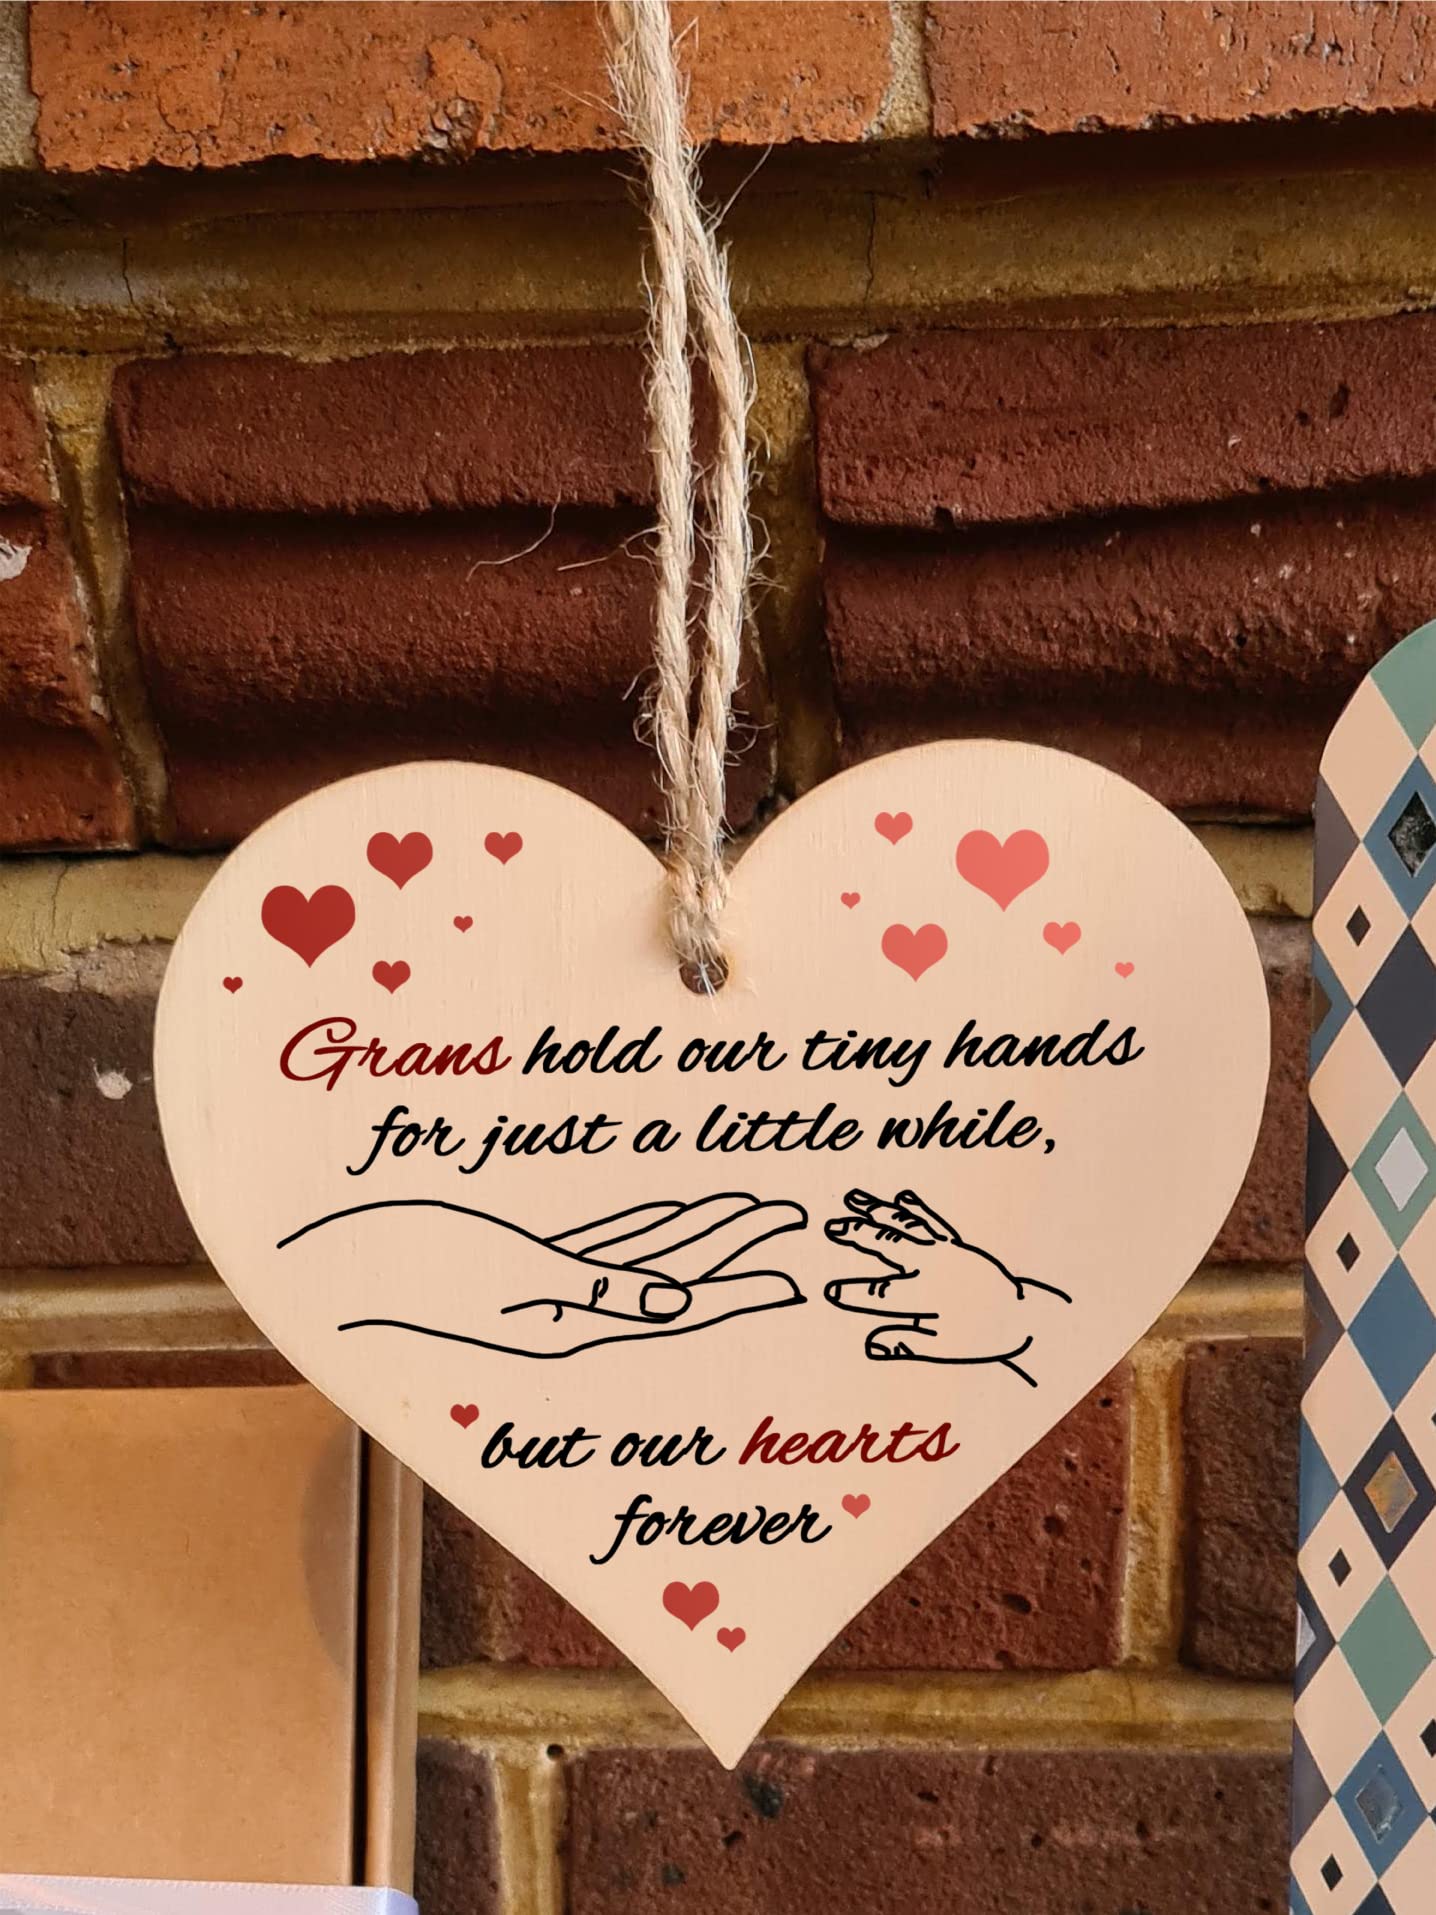 Grans hold our tiny hands
for just a little while,
but our hearts
forever